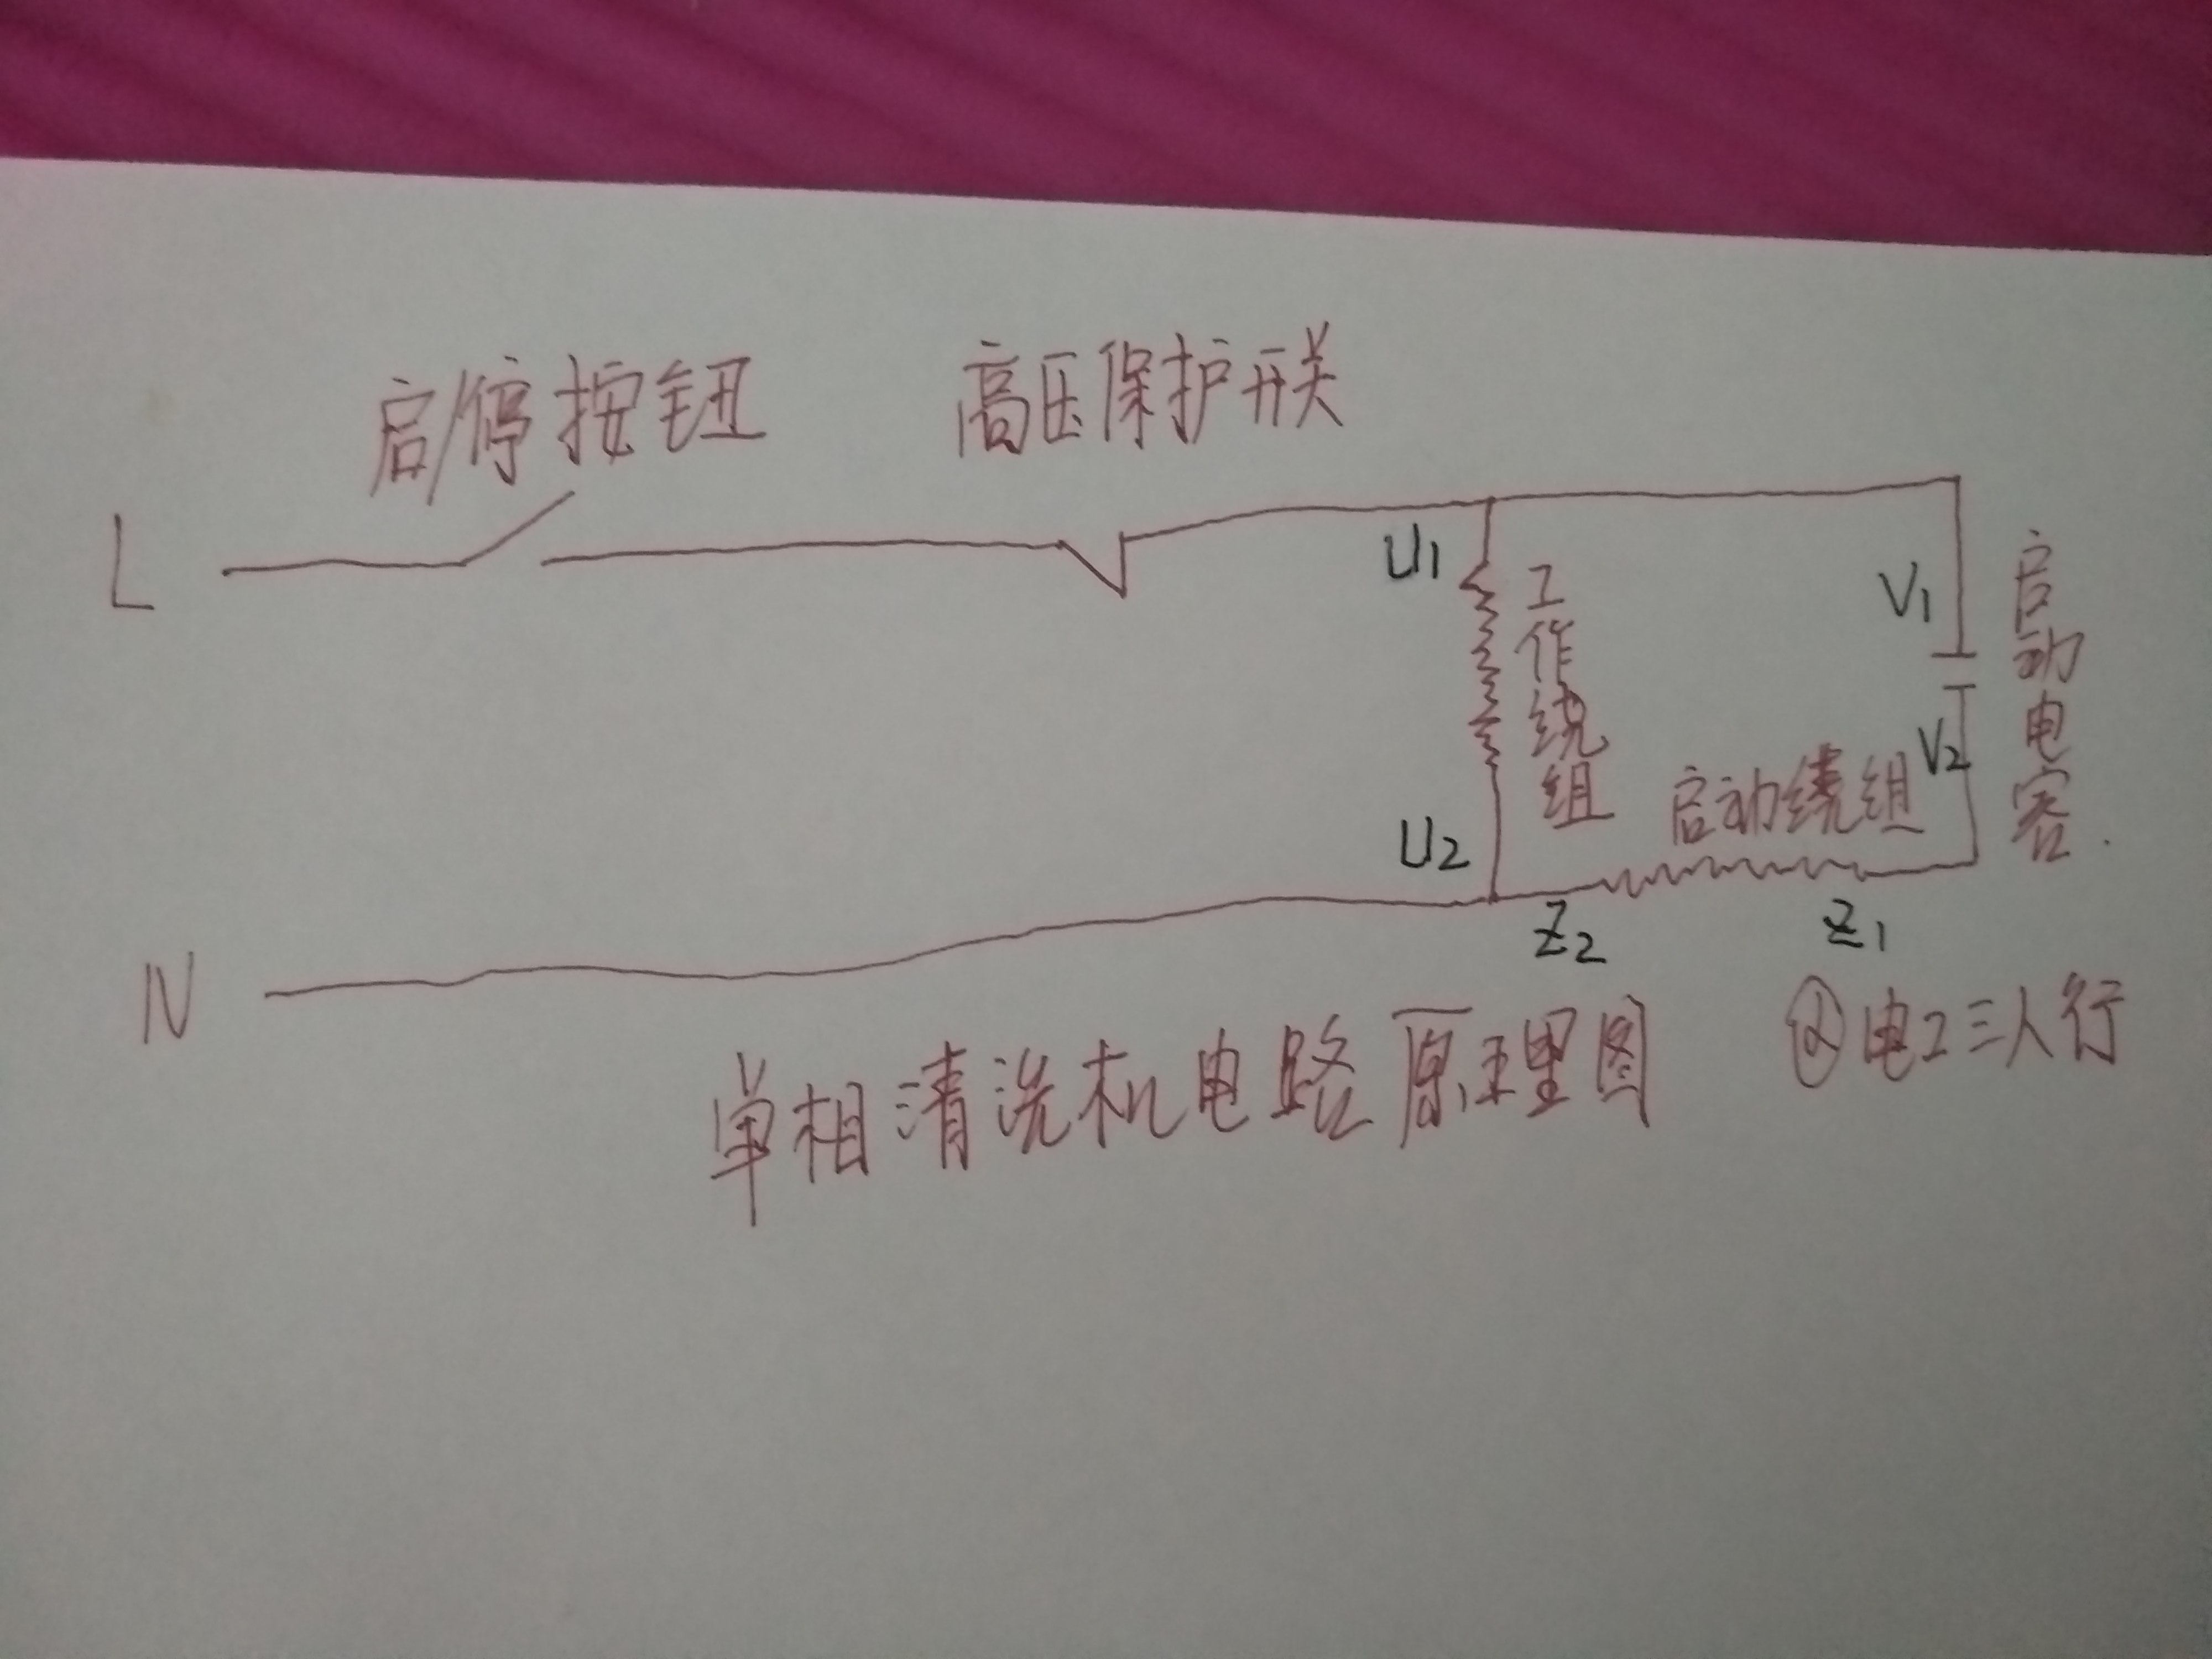 启/停按钮 高压保护开关
L
U1
工作绕组
V1
启动电容
V2
启动绕组
U2
Z2 Z1
N
单相清洗机电路原理图
@电工三人行